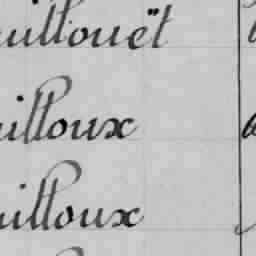 uillouët
uilloux
uilloux